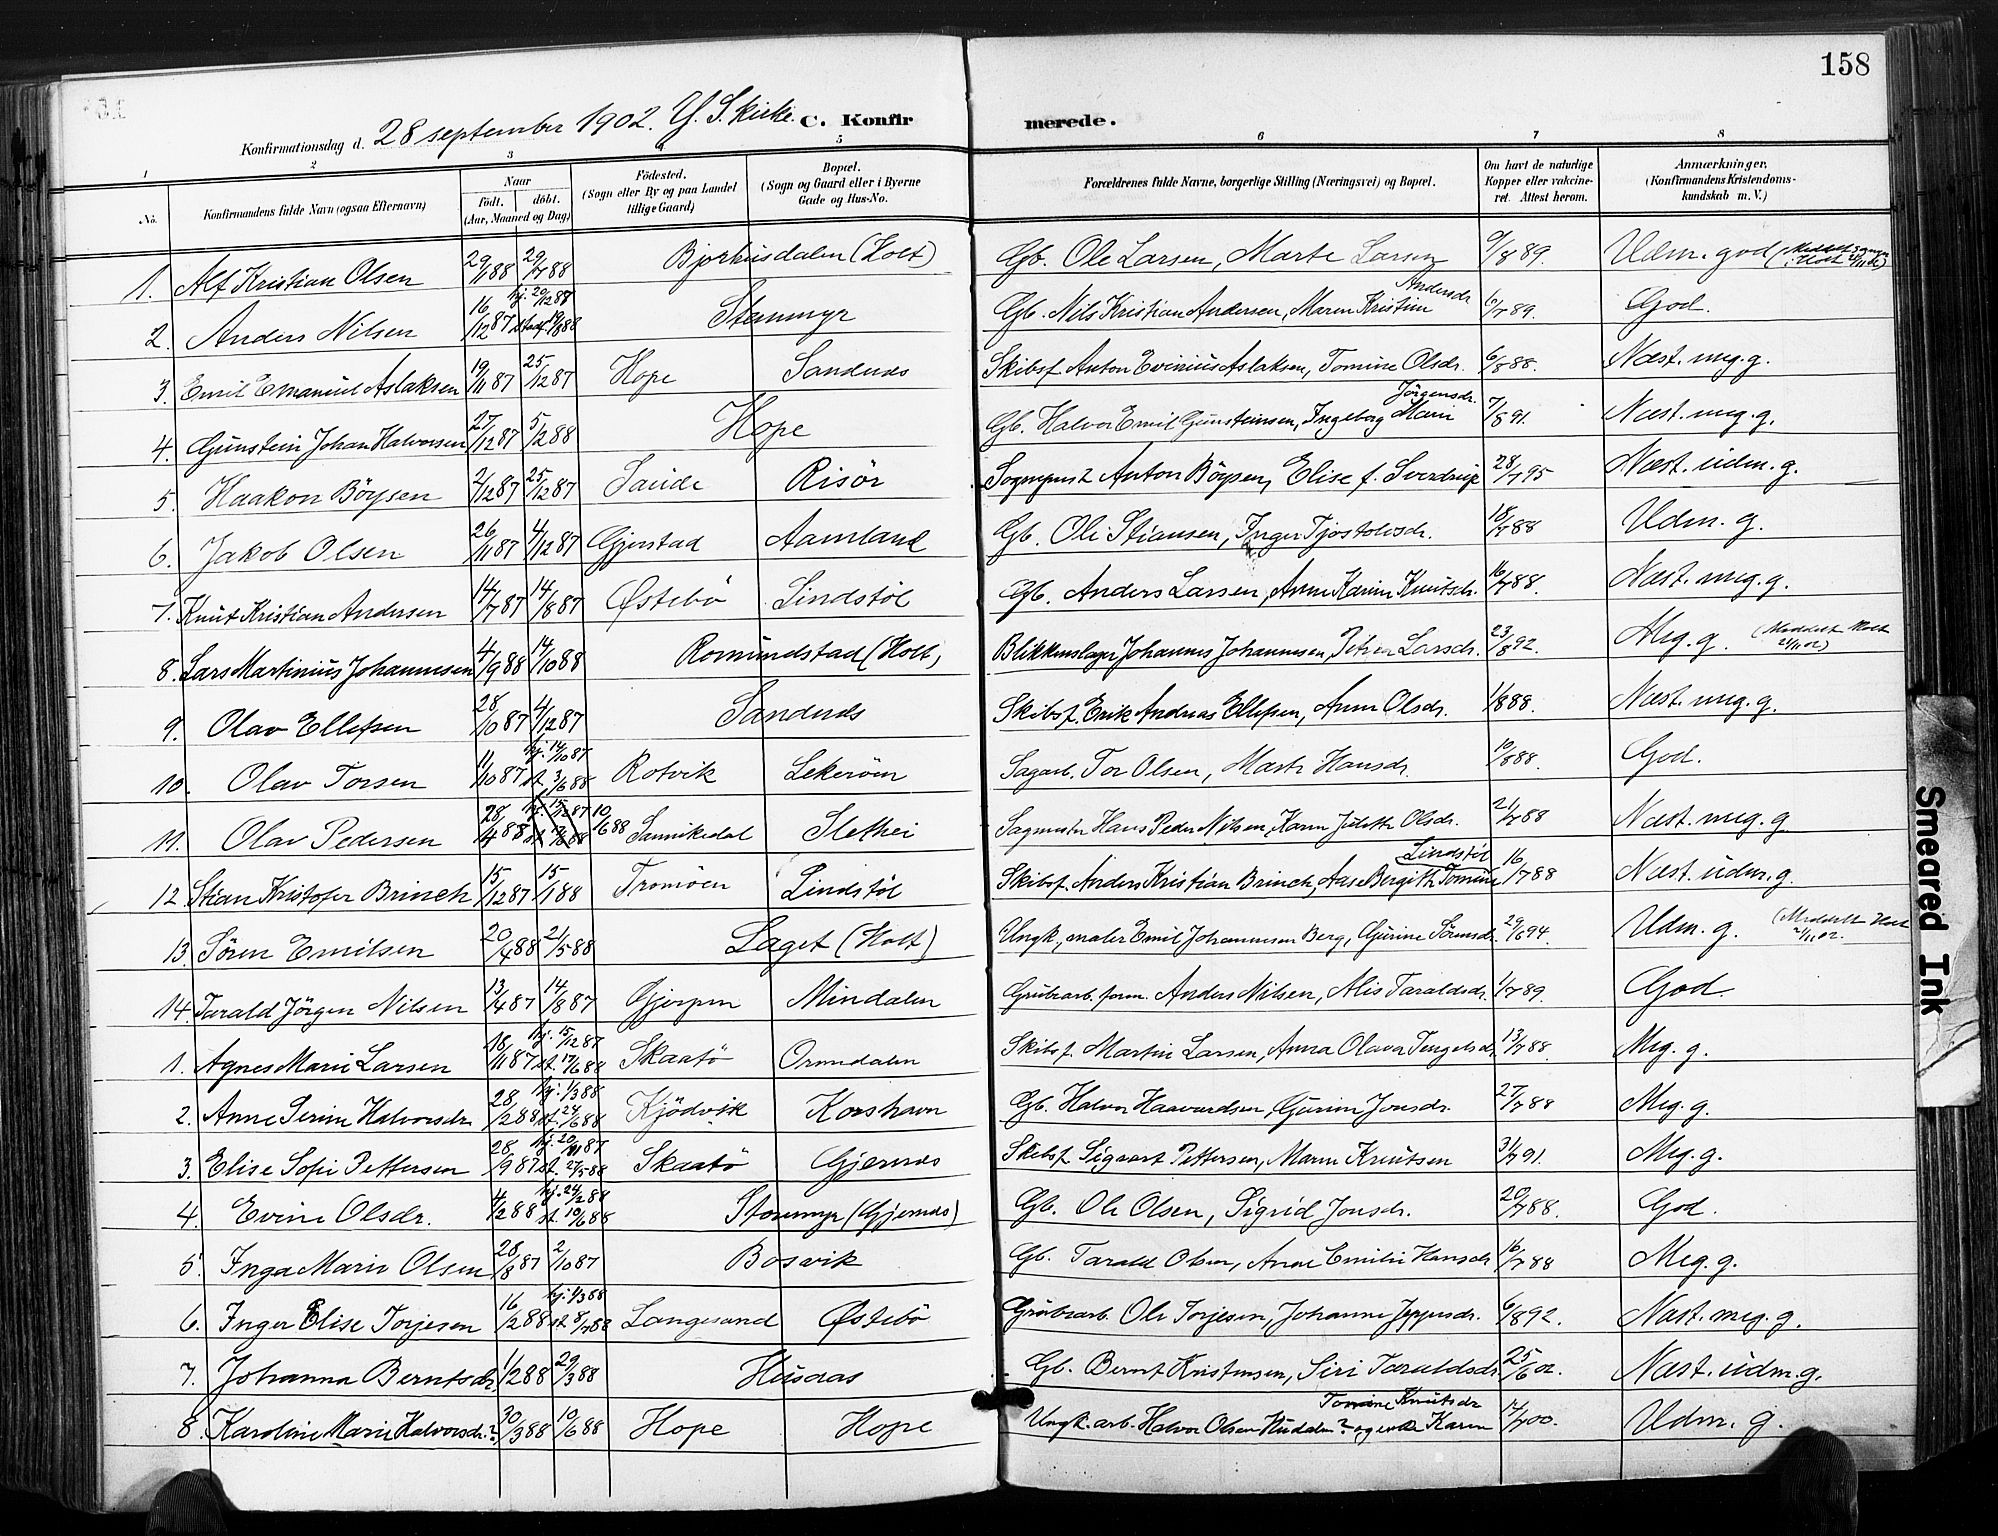 158
Konfirmationsdag d. 28 september 1902. Y. S. kirke. C. Konfirmerede.
1 2 3 4 5 6 7 8
No. Konfirmandens fulde Navn (ogsaa Efternavn) Naar födt. döbt. (Aar, Maaned og Dag) Födested. (Sogn eller By og paa Landet tillige Gaard) Bopæl. (Sogn og Gaard eller i Byerne Gade og Hus-No. Forældrenes fulde Navne, borgerlige Stilling (Næringsvei) og Bopæl. Om havt de naturlige Kopper eller vakcineret. Attest herom. Anmærkninger, (Konfirmandens Kristendomskundskab m. V.)
1. Alf Kristian Olsen 29/1 88 29/7 88 Bjorhusdalen (Holt) Gb. Ole Larsen, Marte Larsen 9/8 89. Udm. god
2. Anders Nilsen 16/12 87 hj. 20/12 88 Stenmyr Gb. Nils Kristian Andersen, Maren Kristine Andersdr. 6/7 89. God.
3. Emil Emanuel Aslaksen 19/11 87 25/12 87 Hope Sandnes Skibsf. Anton Evinius Aslaksen, Tomine Olsdr. 6/8 88. Næst. meg. g.
4. Gunstein Johan Halvorsen 27/12 87 5/2 88 Hope Gb. Halvor Emil Gunsteinsen, Ingeborg Marie Jörgensdr. 7/8 91. Næst. meg. g.
5. Haakon Böysen 2/12 87 25/12 87 Saude Risör Sognepræst Anton Böysen, Elise f. Sverdrup 28/7 95 Næst. udm. g.
6. Jakob Olsen 26/11 87 4/12 87 Gjerstad Aamland Gb. Ole Stiansen, Inger Tjostolvsdr. 18/7 88 Udm. g.
7. Knut Kristian Andersen 14/7 87 14/8 87 Østebö Lindstöl Gb. Anders Larsen, Anne Karine Knutsdr. 16/7 88. Næst. meg. g.
8. Lars Martinius Johannesen 4/9 88 14/10 88 Romundstad (Holt) Blikkenslager Johannes Johannesen, Larsdr. 23/8 92. Meg. g. (Meddelt Holt 24/11 02)
9. Olav Ellefsen 28/10 87 4/12 87 Sandnes Skibsf. Erik Andreas Ellefsen, Anne Olsdr. 1/8 88. Næst. meg. g.
10. Olav Torsen 11/10 87 hj. 14/10 87 st. 3/6 88 Rotvik Lekeröen Sagarb. Tor Olsen, Marte Hansdr. 10/8 88. God.
11. Olav Pedersen 28/4 88 10/6 88 Sannikedal Slethei Sagmester Hans Peder Nilsen, Karen Julette Olsdr. 21/7 88 Næst. meg. g.
12. Stian Kristofer Brinch 15/12 87 15/1 88 Tromöen Lindstöl Skibsf. Anders Kristian Brinch, Aase Bergitte Tomine Lindstöl 16/7 88 Næst. udm. g.
13. Sören Emilsen 20/4 88 21/5 88 Laget (Holt) Ungk., maler Emil Johannesen Berg, Gurine Sörensdr. 29/6 94. Udm. g. (Meddelt Holt 21/11 02.
14. Tarald Jörgen Nilsen 13/4 87 14/8 87 Gjerpen Mindalen Grubearb. form. Anders Nilsen, Alis Taraldsdr. 1/7 89. God.
1. Agnes Marie Larsen 18/11 87 hj. 15/12 87 st. 17/6 88 Skaatö Ormdalen Skibsf. Martin Larsen, Anna Olava Tengelsdr. 13/7 88. Meg. g.
2. Anne Serine Halvorsdr. 28/2 88 hj. 1/3 88 st. 24/6 88 Kjödvik Korshavn Gb. Halvor Haavardsen, Gurine Jonsdr. 27/7 88 Meg. g.
3. Elise Sofie Pettersen 28/9 87 hj. 20/11 87 st. 27/5 88 Skaatö Gjernes Skibsf. Sigvart Pettersen, Maren Knutsen 31/7 91. Meg. g.
4. Evine Olsdr. 4/2 88 hj. 24/2 88 st. 10/6 88 Storemyr (Gjernes) Gb. Ole Olsen, Sigrid Jonsdr. 20/7 88. God.
5. Inga Marie Olsen 28/8 87 2/10 87 Bosvik Gb. Tarald Olsen, Anne Emilie Hansdr. 16/7 88 Meg. g.
6. Inger Elise Torjesen 16/2 88 hj. 4/3 88 st. 8/7 88 Langesand Østebö Grubearb. Ole Torjesen, Johanne Jeppesdr. 6/8 92. Næst. meg. g.
7. Johanna Berntsdr. 1/2 88 29/3 88 Husaas Gb. Bernt Kristensen, Siri Taraldsdr. 25/6 02. Næst. udm. g.
8. Karoline Marie Halvorsdr. ? 30/3 88 10/6 88 Hope Hope Ungk. arb. Halvor Olsen ? og enke Karen Tomine Knutsdr. 17/7 00. Udm. g.
Smeared Ink